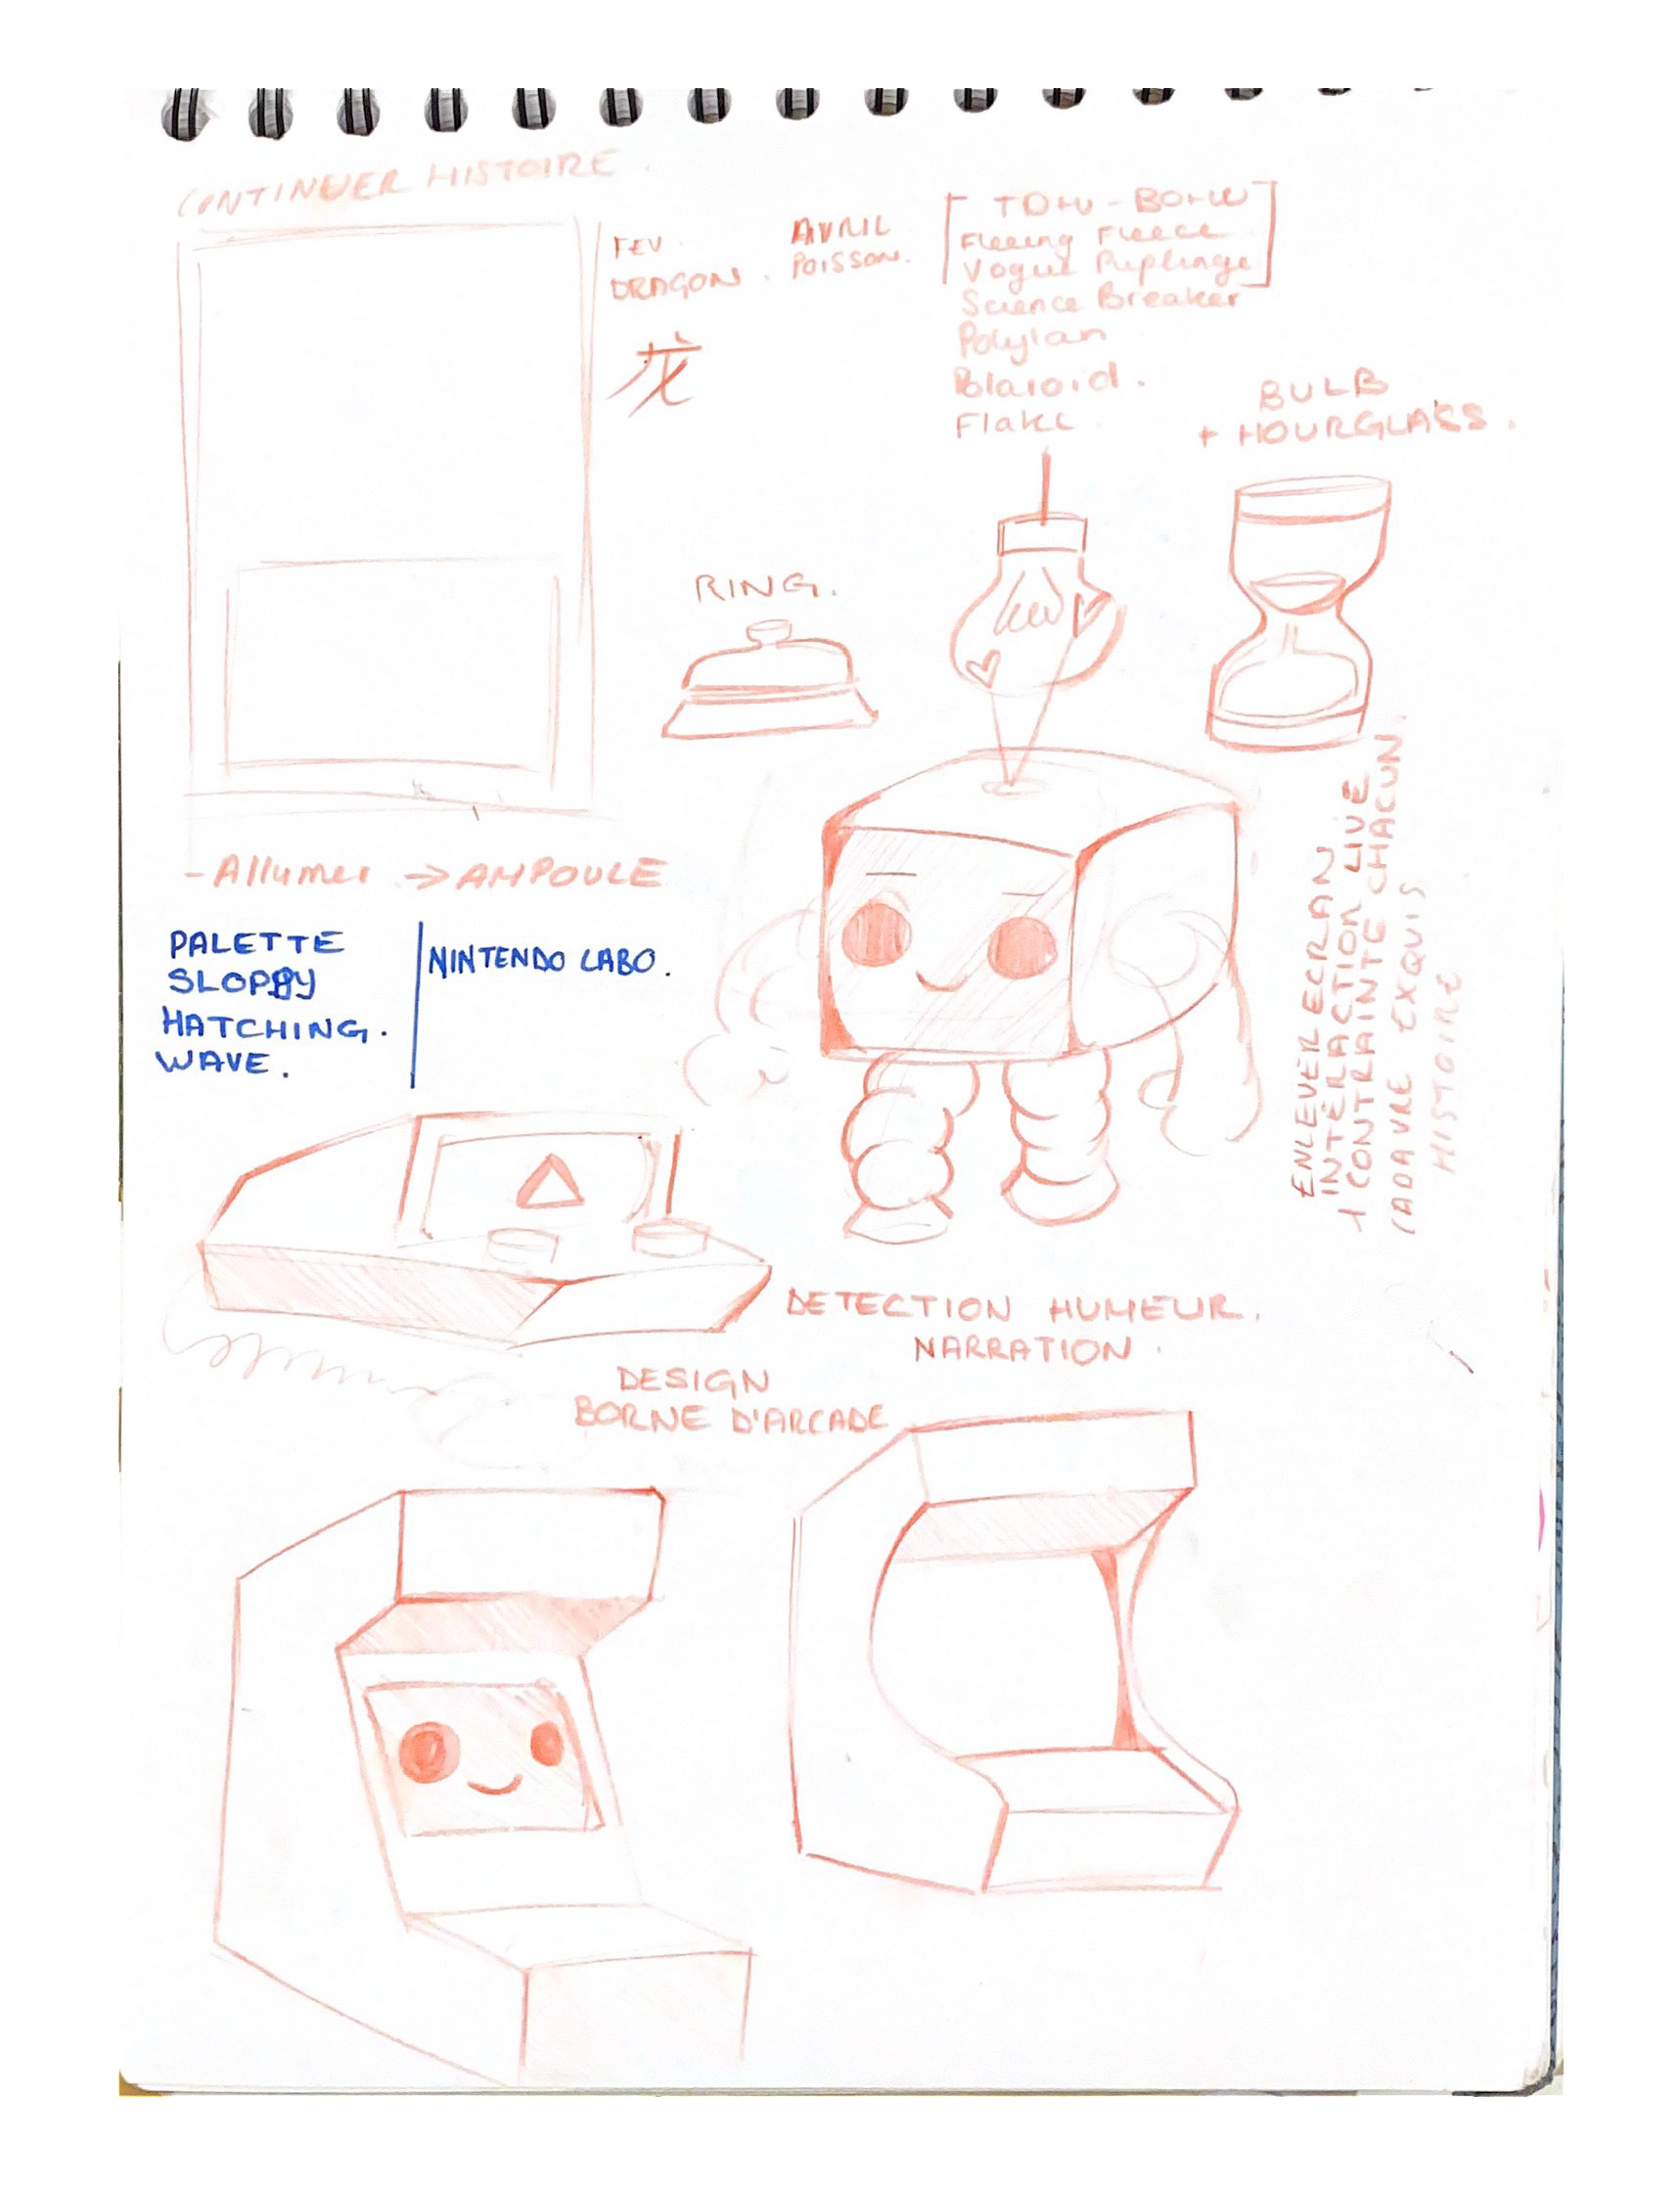 CONTINUER HISTOIRE.
FEV
DRAGON.
龙
AVRIL
POISSON.
Fleeing Fleece
Vogue
Science Breaker
Polaroid.
Flake.
BULB
+ HOURGLASS.
RING.
- Allumer → AMPOULE
PALETTE
SLOPPY
HATCHING.
WAVE.
NINTENDO LABO.
ENLEVER ECRAN
INTERACTION LIVE
1 CONTRAINTE CHACUN.
CADAVRE EXQUIS
HISTOIRE
DETECTION HUMEUR.
NARRATION.
DESIGN
BORNE D'ARCADE